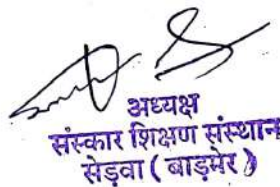 अध्यक्ष
संस्कार शिक्षण संस्थान
सेड़वा ( बाड़मेर )